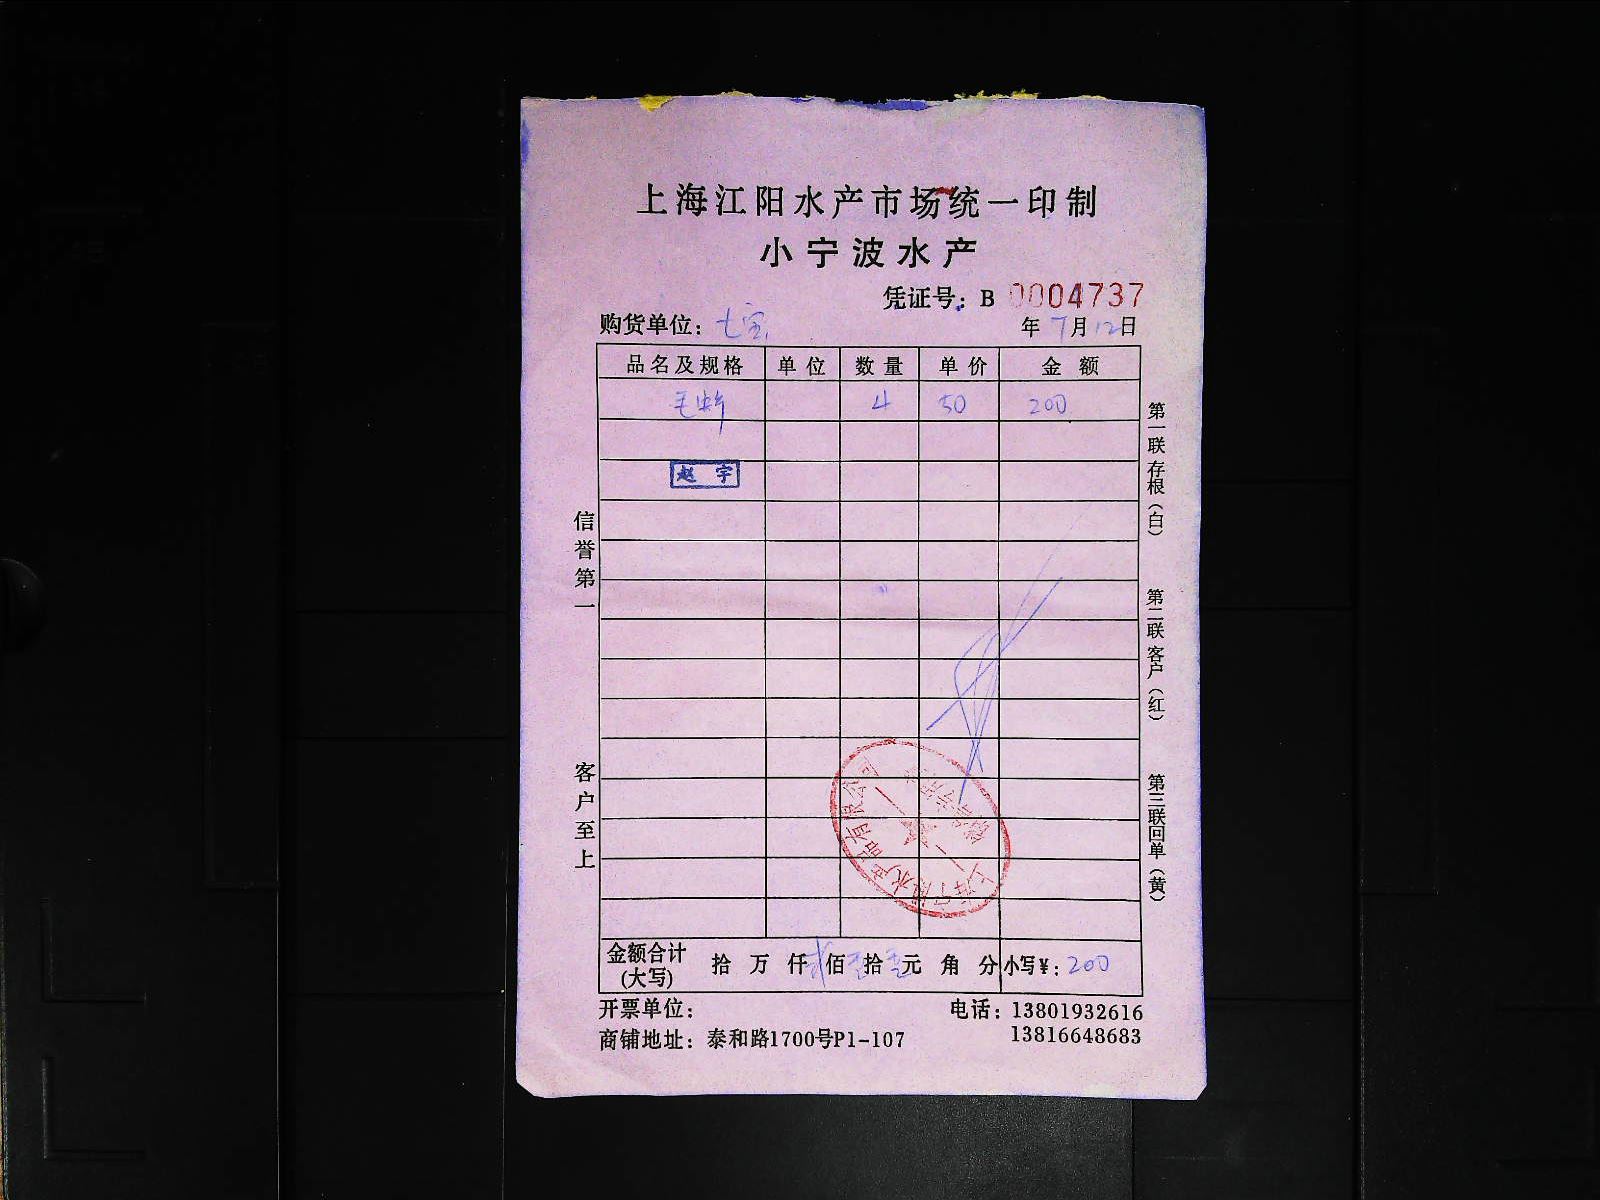 上海江阳水产市场统一印制
小宁波水产
凭证号：B 0004737
购货单位：七宝 年7月12日
品名及规格 单位 数量 单价 金额
毛蚶 4 50 200
赵宇
信誉第一
客户至上
第一联存根（白）
第二联客户（红）
第三联回单（黄）
水产品有限公司
金额合计（大写） 拾 万 仟 贰佰 零拾 零元 角 分 小写¥：200
开票单位： 电话：13801932616
商铺地址：泰和路1700号P1-107 13816648683